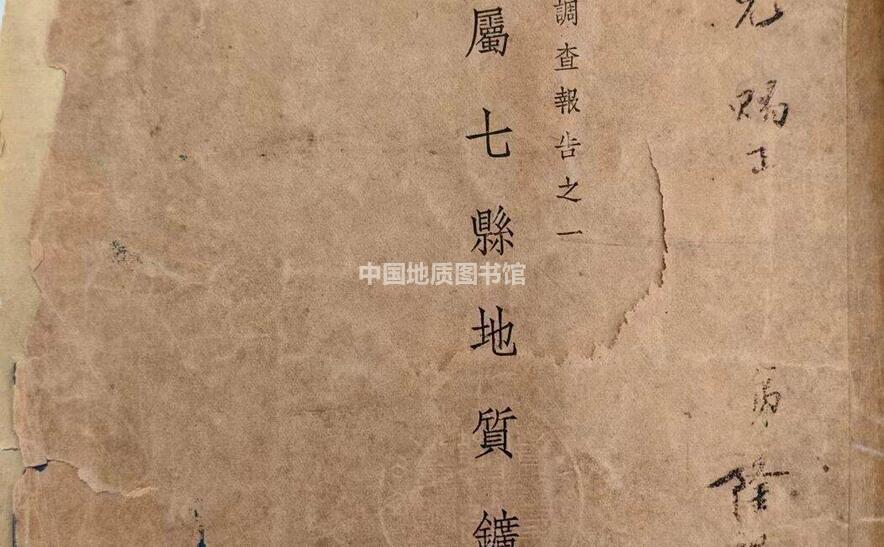 兄
賜
正
弟
隆
調查報告之一
屬七縣地質鑛
中国地质图书馆